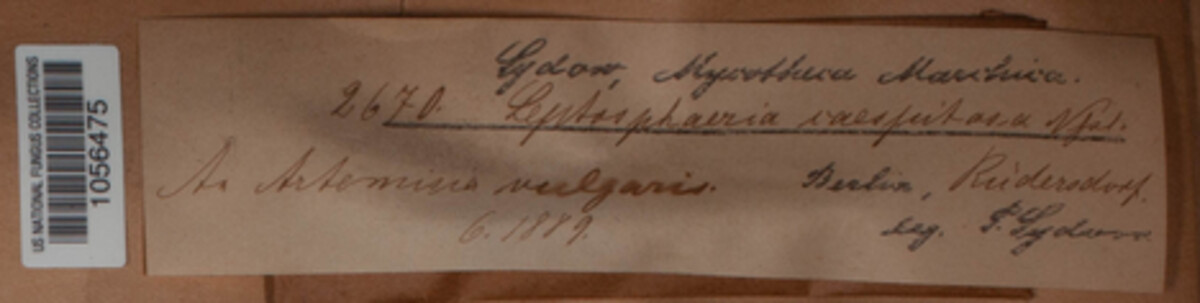 US NATIONAL FUNGUS COLLECTIONS
1056475
Sydow, Mycotheca Marchica.
2670. Leptosphaeria caespitosa Nssl.
An Artemisia vulgaris. Berlin, Rüdersdorf.
6. 1889. leg. P. Sydow